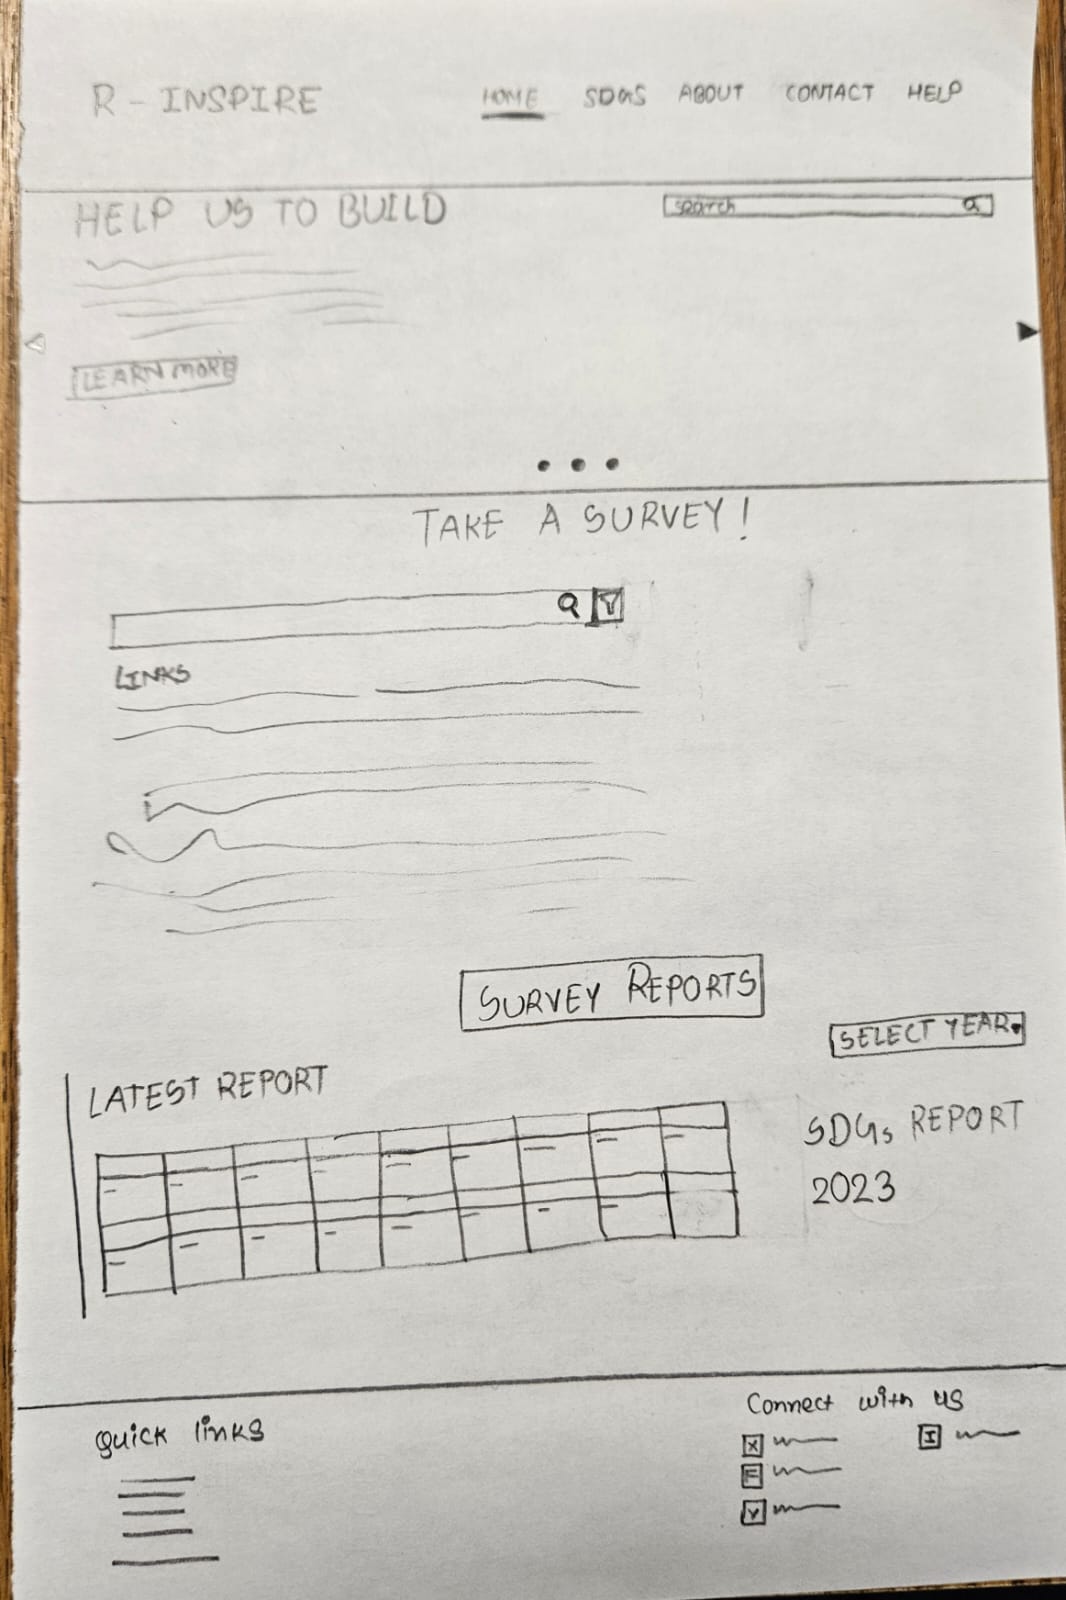 R - INSPIRE
HOME SDGS ABOUT CONTACT HELP
HELP US TO BUILD
search
LEARN MORE
TAKE A SURVEY!
LINKS
SURVEY REPORTS
SELECT YEAR
LATEST REPORT
SDGs REPORT
2023
Quick links
Connect with us
X
I
F
Y